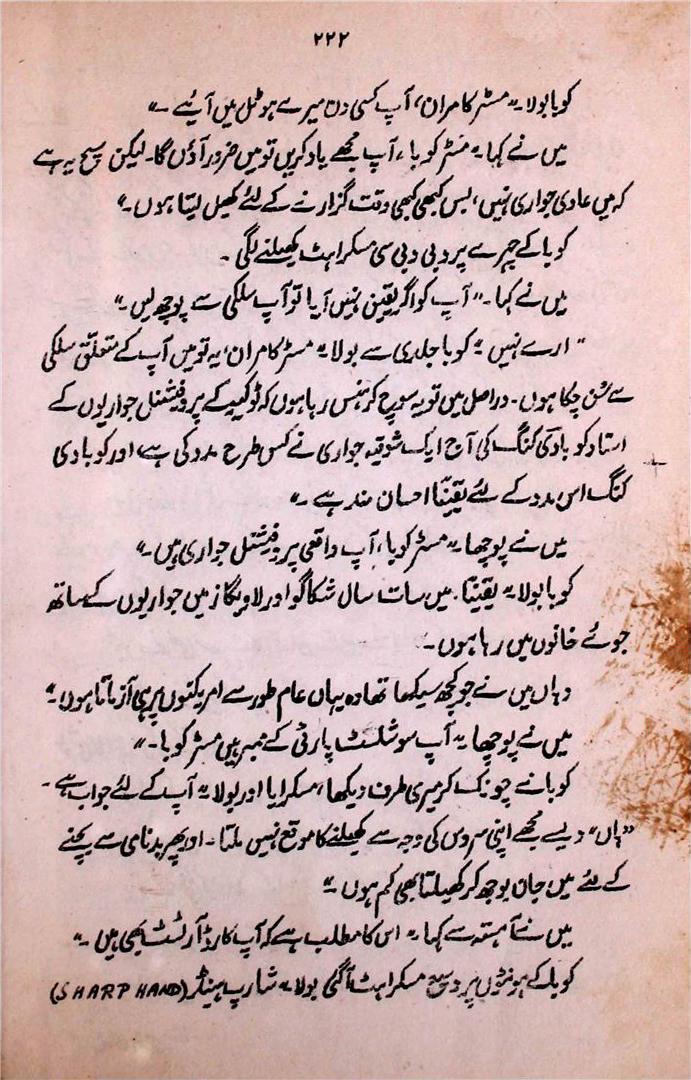 ۲۲۲
کوبا بولا۔" مسٹر کامران، آپ کسی دن میرے ہوٹل میں آیئے۔"
میں نے کہا۔" مسٹر کوبا، آپ مجھے یاد کریں تو میں ضرور آؤں گا۔ لیکن سچ یہ ہے
کہ میں عادی جواری نہیں، بس کبھی کبھی وقت گزارنے کے لئے کھیل لیتا ہوں۔"
کوبا کے چہرے پر دبی دبی سی مسکراہٹ کھیلنے لگی۔
میں نے کہا۔" آپ کو اگر یقین نہیں آیا تو آپ سلکی سے پوچھ لیں۔"
" ارے نہیں۔" کوبا جلدی سے بولا۔" مسٹر کامران، یہ تو میں آپ کے متعلق سلکی
سے سُن چکا ہوں۔ دراصل میں تو یہ سوچ کر ہنس رہا ہوں کہ ٹوکیو کے پروفیشنل جواریوں کے
استاد کوبادی کنگ کی آج ایک شوقیہ جواری نے کس طرح مدد کی ہے، اور کوبادی
کنگ اس مدد کے لئے یقیناً احسان مند ہے۔"
میں نے پوچھا۔" مسٹر کوبا، آپ واقعی پروفیشنل جواری ہیں۔"
کوبا بولا۔" یقیناً۔ میں سات سال شکاگو اور لاویگاز میں جواریوں کے ساتھ
جوئے خانوں میں رہا ہوں۔
وہاں میں نے جو کچھ سیکھا تھا وہ یہاں عام طور سے امریکنوں پر ہی آزماتا ہوں۔"
میں نے پوچھا۔" آپ سوشلسٹ پارٹی کے ممبر ہیں مسٹر کوبا۔"
کوبا نے چونک کر میری طرف دیکھا، مسکرایا اور بولا۔" آپ کے لئے جواب ہے۔
"ہاں" ویسے مجھے اپنی سروس کی وجہ سے کھیلنے کا موقع نہیں ملتا۔ اور پھر بدنامی سے بچنے
کے لئے میں جان بوجھ کر کھیلتا بھی کم ہوں۔"
میں نے آہستہ سے کہا۔" اس کا مطلب ہے کہ آپ کارڈ آرٹسٹ بھی ہیں۔"
کوبا کے ہونٹوں پر وسیع مسکراہٹ آگئی بولا۔" شارپ ہینڈ (SHARP HAND)